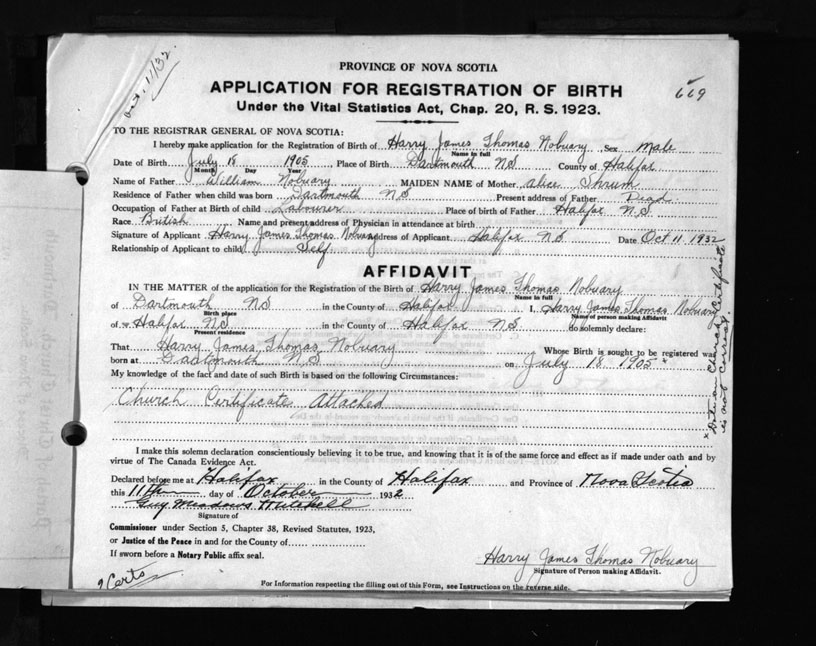 Oct. 11/32.
PROVINCE OF NOVA SCOTIA
669
APPLICATION FOR REGISTRATION OF BIRTH
Under the Vital Statistics Act, Chap. 20, R. S. 1923.
TO THE REGISTRAR GENERAL OF NOVA SCOTIA:
I hereby make application for the Registration of Birth of Harry James Thomas Nobuary Sex Male
Name in full
Date of Birth July 18 1905 Place of Birth Dartmouth NS County of Halifax
Month Day Year
Name of Father William Nobuary MAIDEN NAME of Mother Alice Shrum
Residence of Father when child was born Dartmouth NS Present address of Father Dead
Occupation of Father at Birth of child Labourer Place of birth of Father Halifax N.S
Race British Name and present address of Physician in attendance at birth
Signature of Applicant Harry James Thomas Nobuary Address of Applicant Halifax NS Date Oct 11 1932
Relationship of Applicant to child Self
AFFIDAVIT
IN THE MATTER of the application for the Registration of the Birth of Harry James Thomas Nobuary
Name in full
of Dartmouth NS in the County of Halifax I, Harry James Thomas Nobuary
Birth place Name of person making Affidavit
of Halifax NS in the County of Halifax NS do solemnly declare:
Present residence
That Harry James Thomas Nobuary Whose Birth is sought to be registered was
born at Dartmouth NS on July 18 1905 x
My knowledge of the fact and date of such Birth is based on the following Circumstances:
Church Certificate Attached
x Date on Church Certificate
is not correct.
I make this solemn declaration conscientiously believing it to be true, and knowing that it is of the same force and effect as if made under oath and by
virtue of The Canada Evidence Act.
Declared before me at Halifax in the County of Halifax and Province of Nova Scotia
this 11th day of October 1932
Guy Mitchell
Signature of
Commissioner under Section 5, Chapter 38, Revised Statutes, 1923,
or Justice of the Peace in and for the County of
If sworn before a Notary Public affix seal.
Harry James Thomas Nobuary
Signature of Person making Affidavit.
2 Certs
For Information respecting the filling out of this Form, see Instructions on the reverse side.